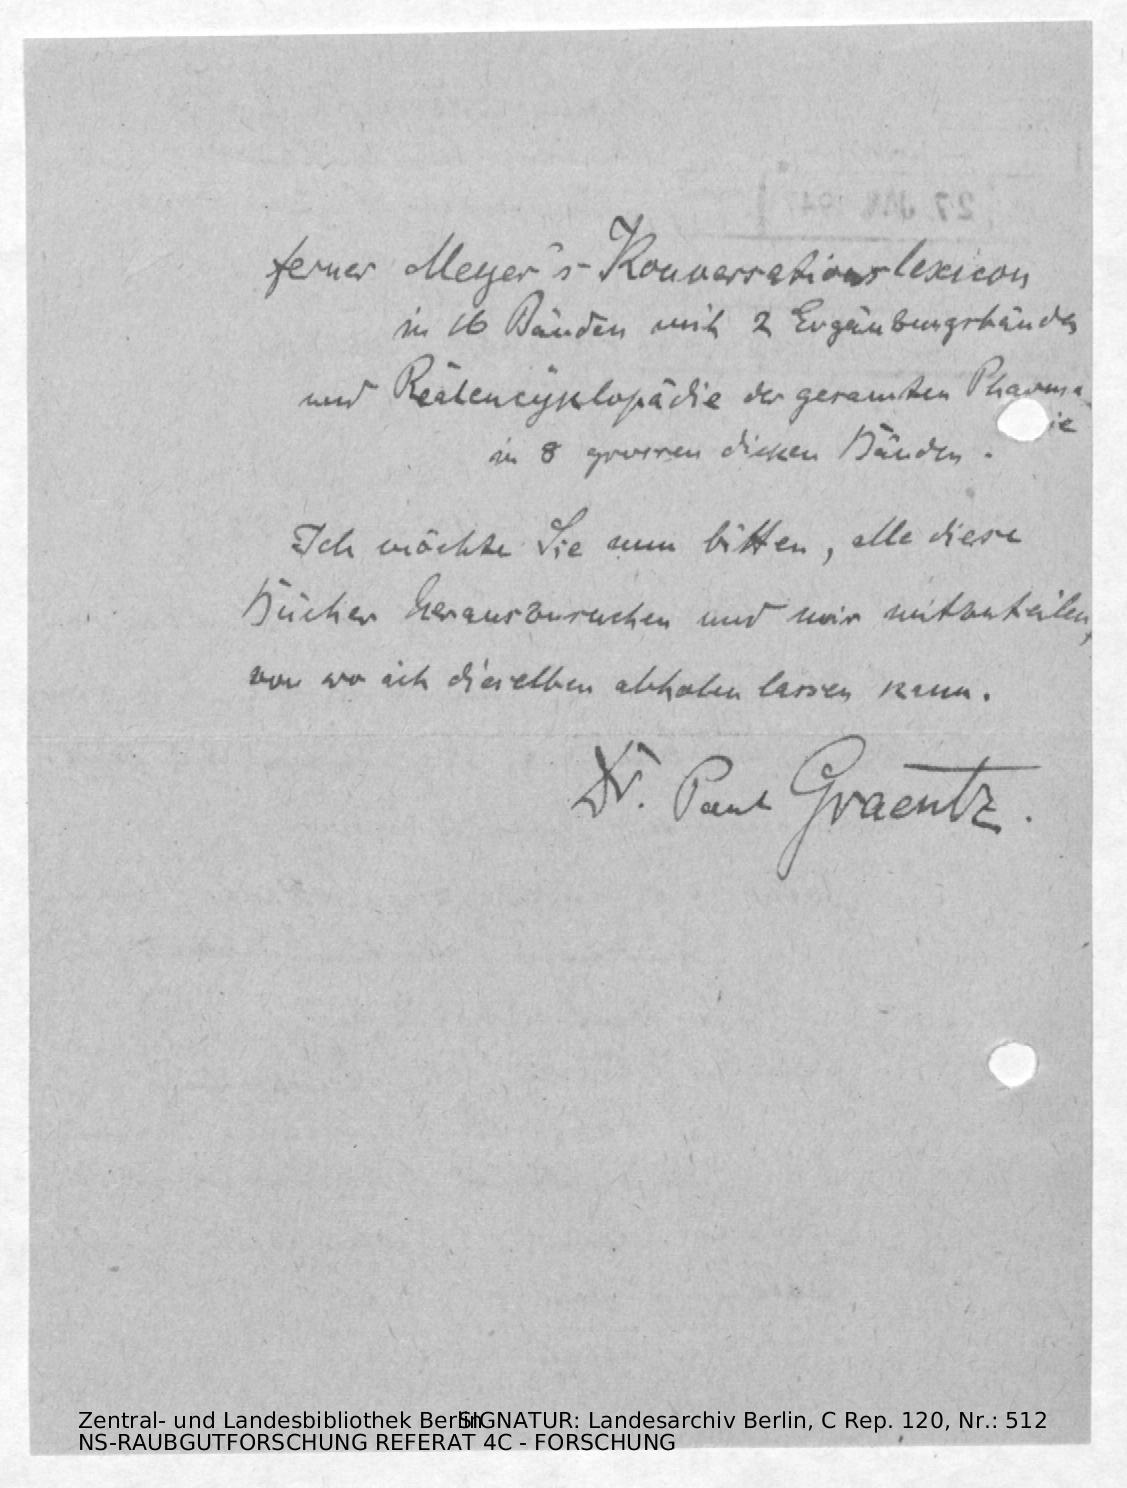 27. JAN. 1947
ferner Meyer's Konversationslexicon
in 16 Bänden mit 2 Ergänzungsbänden
und Realencyklopädie der gesamten Pharma
ie
in 8 grossen dicken Bänden.
Ich möchte Sie nun bitten, alle diese
Bücher herauszusuchen und mir mitzuteilen,
von wo ich dieselben abholen lassen kann.
Dr. Paul Graentz.
Zentral- und Landesbibliothek Berlin
SIGNATUR: Landesarchiv Berlin, C Rep. 120, Nr.: 512
NS-RAUBGUTFORSCHUNG REFERAT 4C - FORSCHUNG